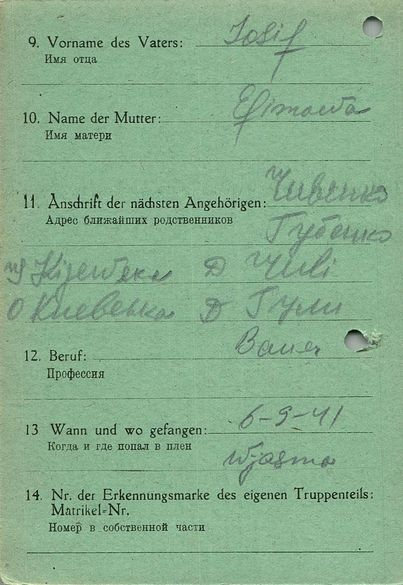 9. Vorname des Vaters: Iosif
Имя отца
10. Name der Mutter:
Имя матери
11. Anschrift der nächsten Angehörigen:
Адрес ближайших родственников
Д
О Киевська Д Гули
12. Beruf: Bauer
Профессия
13 Wann und wo gefangen: 6-9-41
Когда и где попал в плен
Wjasma
14. Nr. der Erkennungsmarke des eigenen Truppenteils:
Matrikel=Nr.
Номер в собственной части